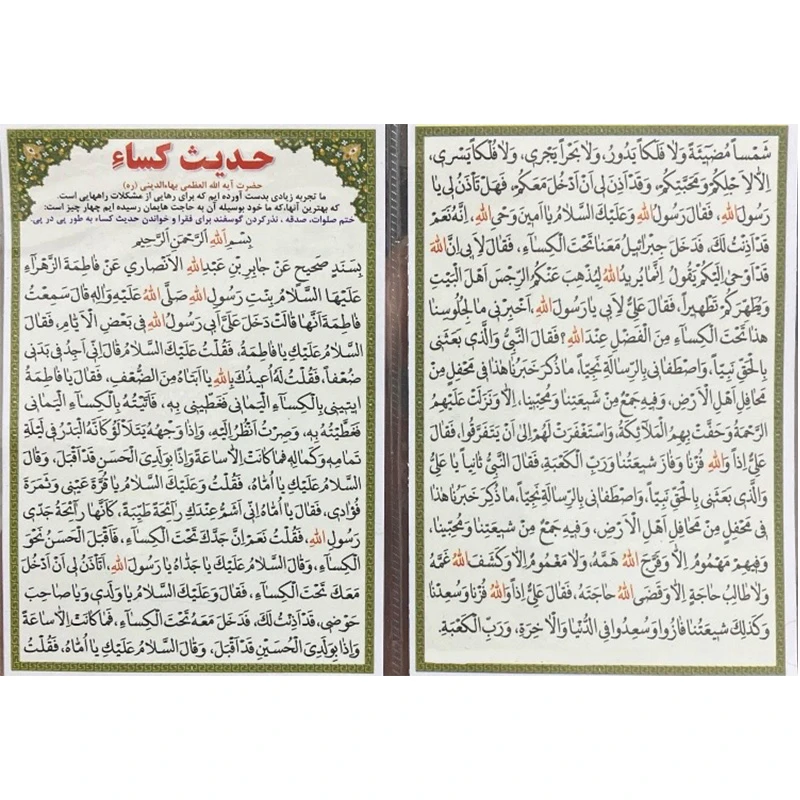 حدیث کساءِ
حضرت آیه الله العظمی بهاءالدینی (ره)
ما تجربه زیادی بدست آورده ایم که برای رهایی از مشکلات راههایی است.
که بهترین آنها،که ما خود بوسیله آن به حاجت هایمان رسیده ایم چهار چیز است:
ختم صلوات، صدقه ، نذرکردن گوسفند برای فقرا و خواندن حدیث کساء به طور پی در پی.
بِسْمِ اللهِ الرَّحْمٰنِ الرَّحیمِ
بِسَنَدٍ صَحیحٍ عَنْ جابِرِ بْنِ عَبْدِ اللهِ الْأَنْصاری عَنْ فاطِمَةَ الزَّهْرٰآءِ
عَلَیْهَا السَّلامُ بِنْتِ رَسُولِ اللهِ صَلَّی اللهُ عَلَیْهِ وَاٰلِهِ قالَ سَمِعْتُ
فاطِمَةَ اَنَّها قالَتْ دَخَلَ عَلَیَّ اَبی رَسُولُ اللهِ فی بَعْضِ الْاَیّامِ، فَقالَ
السَّلامُ عَلَیْکِ یا فاطِمَةُ، فَقُلْتُ عَلَیْکَ السَّلامُ قالَ اِنّی اَجِدُ فی بَدَنی
ضُعْفاً، فَقُلْتُ لَهُ اُعیذُکَ بِاللهِ یا اَبَتاهُ مِنَ الضُّعْفِ، فَقالَ یا فاطِمَةُ
ایتینی بِالْکِسآءِ الْیَمانی فَغَطّینی بِهِ، فَاَتَیْتُهُ بِالْکِسآءِ الْیَمانی
فَغَطَّیْتُهُ بِهِ، وَصِرْتُ اَنْظُرُ اِلَیْهِ، وَاِذا وَجْهُهُ یَتَلَأْلَؤُ کَاَنَّهُ الْبَدْرُ فی لَیْلَةِ
تَمامِهِ وَکَمالِهِ فَما کانَتْ اِلاّ ساعَةً وَاِذا بِوَلَدِیَ الْحَسَنِ قَدْ اَقْبَلَ، وَقالَ
السَّلامُ عَلَیْکِ یا اُمّاهُ، فَقُلْتُ وَعَلَیْکَ السَّلامُ یا قُرَّةَ عَیْنی وَثَمَرَةَ
فُؤادی، فَقالَ یا اُمّاهُ اِنّی اَشَمُّ عِنْدَکِ رآئِحَةً طَیِّبَةً، کَاَنَّها رآئِحَةُ جَدّی
رَسُولِ اللهِ، فَقُلْتُ نَعَمْ اِنَّ جَدَّکَ تَحْتَ الْکِسآءِ، فَاَقْبَلَ الْحَسَنُ نَحْوَ
الْکِسآءِ، وَقالَ السَّلامُ عَلَیْکَ یا جَدّاهُ یا رَسُولَ اللهِ، اَتَأْذَنُ لی اَنْ اَدْخُلَ
مَعَکَ تَحْتَ الْکِسآءِ، فَقالَ وَعَلَیْکَ السَّلامُ یا وَلَدی وَیا صاحِبَ
حَوْضی، قَدْ اَذِنْتُ لَکَ، فَدَخَلَ مَعَهُ تَحْتَ الْکِسآءِ، فَما کانَتْ اِلاّ ساعَةً
وَاِذا بِوَلَدِیَ الْحُسَیْنِ قَدْ اَقْبَلَ، وَقالَ السَّلامُ عَلَیْکِ یا اُمّاهُ، فَقُلْتُ
شَمْساً مُضیئَةً وَلا فَلَکاً یَدُورُ، وَلا بَحْراً یَجْری، وَلا فُلْکاً یَسْری،
اِلاّ لِاَجْلِکُمْ وَمَحَبَّتِکُمْ، وَقَدْ اَذِنَ لی اَنْ اَدْخُلَ مَعَکُمْ، فَهَلْ تَأْذَنُ لی یا
رَسُولَ اللهِ، فَقالَ رَسُولُ اللهِ وَعَلَیْکَ السَّلامُ یا اَمینَ وَحْیِ اللهِ، اِنَّهُ نَعَمْ
قَدْ اَذِنْتُ لَکَ، فَدَخَلَ جِبْرآئیلُ مَعَنا تَحْتَ الْکِسآءِ، فَقالَ لِاَبی اِنَّ اللهَ
قَدْ اَوْحی اِلَیْکُمْ یَقُولُ اِنَّما یُریدُ اللهُ لِیُذْهِبَ عَنْکُمُ الرِّجْسَ اَهْلَ الْبَیْتِ
وَیُطَهِّرَکُمْ تَطْهیراً، فَقالَ عَلِیٌّ لِاَبی یا رَسُولَ اللهِ، اَخْبِرْنی ما لِجُلُوسِنا
هذا تَحْتَ الْکِسآءِ مِنَ الْفَضْلِ عِنْدَ اللهِ؟ فَقالَ النَّبِیُّ وَالَّذی بَعَثَنی
بِالْحَقِّ نَبِیّاً، وَاصْطَفانی بِالرِّسالَةِ نَجِیّاً، ما ذُکِرَ خَبَرُنا هذا فی مَحْفِلٍ مِنْ
مَحافِلِ اَهْلِ الْاَرْضِ، وَفیهِ جَمْعٌ مِنْ شیعَتِنا وَمُحِبّینا، اِلاّ وَنَزَلَتْ عَلَیْهِمُ
الرَّحْمَةُ وَحَفَّتْ بِهِمُ الْمَلآئِکَةُ، وَاسْتَغْفَرَتْ لَهُمْ اِلی اَنْ یَتَفَرَّقُوا، فَقالَ
عَلِیٌّ اِذاً وَاللهِ فُزْنا وَفازَ شیعَتُنا وَرَبِّ الْکَعْبَةِ، فَقالَ النَّبِیُّ ثانِیاً یا عَلِیُّ
وَالَّذی بَعَثَنی بِالْحَقِّ نَبِیّاً، وَاصْطَفانی بِالرِّسالَةِ نَجِیّاً، ما ذُکِرَ خَبَرُنا هذا
فی مَحْفِلٍ مِنْ مَحافِلِ اَهْلِ الْاَرْضِ، وَفیهِ جَمْعٌ مِنْ شیعَتِنا وَمُحِبّینا،
وَفیهِمْ مَهْمُومٌ اِلاّ وَفَرَّجَ اللهُ هَمَّهُ، وَلا مَغْمُومٌ اِلاّ وَکَشَفَ اللهُ غَمَّهُ
وَلا طالِبُ حاجَةٍ اِلاّ وَقَضَی اللهُ حاجَتَهُ، فَقالَ عَلِیٌّ اِذاً وَاللهِ فُزْنا وَسُعِدْنا
وَکَذلِکَ شیعَتُنا فازُوا وَسُعِدُوا فِی الدُّنْیا وَالْاٰخِرَةِ، وَرَبِّ الْکَعْبَةِ.